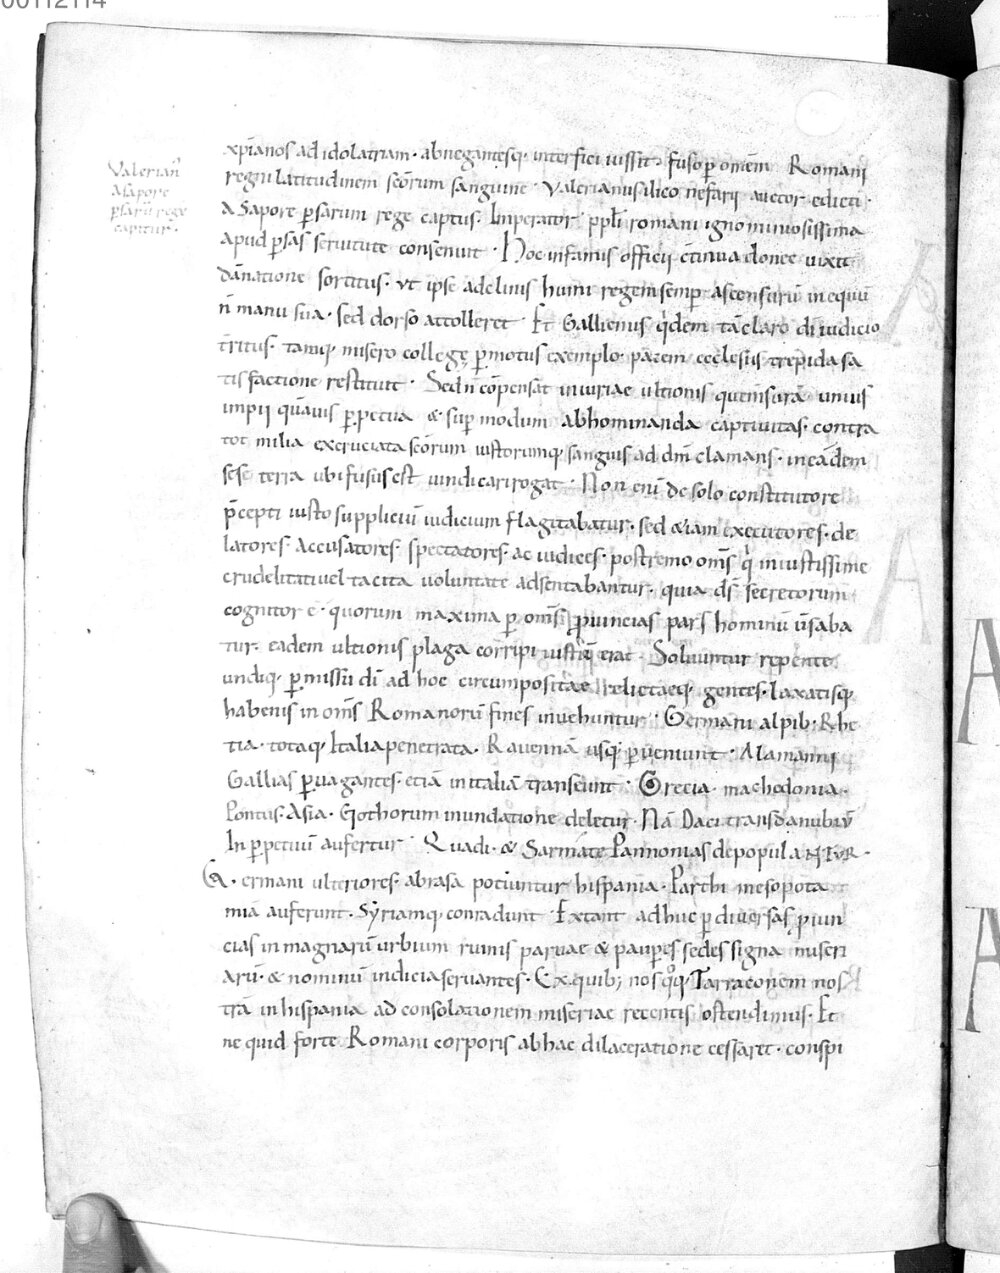 00112114
Valerian᾽
a Sapore
p̱sarū rege
capitur·
xp̄ianos ad idolatriam· abnegantesq; interfici iussit· fuso ꝑ omnem Romani
regni latitudinem sc̄orum sanguine· Valerianus ilico nefarii auctor edicti·
a Sapore ꝑsarum rege captus· Imperator pp̄li romani ignominiosissima
apud ꝑsas seruitute consenuit· Hoc infamis officii c̄tinua donec uixit
dānatione sortitus· ut ipse adclinis humi regem semꝑ ascensurū in equū
n̄ manu sua· sed dorso attolleret· Et Gallienus qⁱdem tā claro di iudicio
tritus· tamq; misero collegę ꝑmotus exemplo· pacem ecclesiis trepida sa
tisfactione restituit· Sed n̄ cōpensat iniuriae ultionis q; mēsurā unius
impii quāuis ꝑpetua & supra modum abhominanda captiuitas· contra
tot milia excruciata sc̄orum iustorumq; sanguis ad dm̄ clamans· in eādem
sese terra ubi fusus est uindicari rogat· Non enī de solo constitutore
p̄cepti iusto suppliciū iudicium flagitabatur· sed &iam executores· de
latores· accusatores· spectatores· ac iudices· postremo om̄s qⁱ iniustissime
crudelitati uel tacita uoluntate adsentabantur· quia ds̄ secretorum
cognitor ē· quorum maxima ꝑ om̄s ꝓuincias pars hominū ūsaba
tur· eadem ultionis plaga corripi iustū erat· Soluuntur repente
undiq; ꝑmissu dī ad hoc circumpositae relictaeq; gentes· laxatisq;
habenis in om̄s Romanorū fines inuehuntur· Germani alpib; Rhe
tia· totaq; Italia penetrata· Rauennā usq; ꝑueniunt· Alamanni
Gallias ꝑuagantes· etiā in italiā transeunt· Grecia· machedonia·
Pontus· Asia· Gothorum inundatione deletur· Nā Daci transdanubiū
In ꝑpetuū aufertur· Quadi· & Sarmate Pannonias depopulaNTVR·
G·ermani ulteriores abrasa potiuntur hispania· Parthi mesopota
miā auferunt· Syriamq; conradunt· Extant adhuc ꝑ diuersas ꝓuin
cias in magnarū urbium ruinis paruae & pauꝑes sedes signa miseri
arū· & nominū indicia seruantes· Ex quib; nos qͦq; Tarraconem nos
trā in hispania ad consolationem miseriae recentis ostendimus· Et
ne quid forte Romani corporis ab hac dilaceratione cessaret· conspi